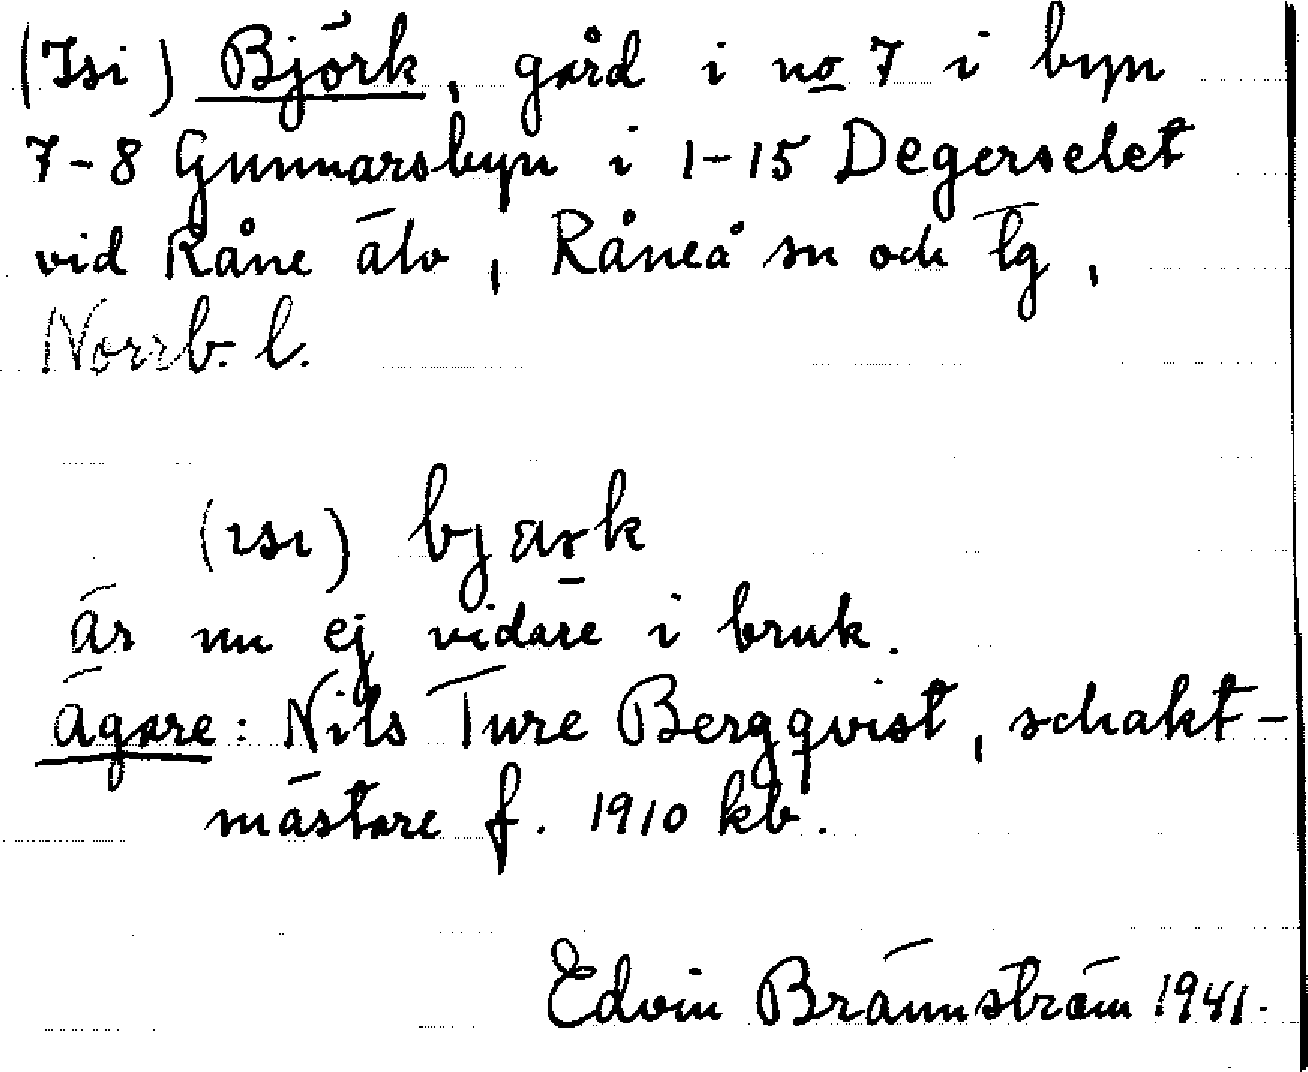 (Isi) Björk, gård i no 7 i byn
7-8 Gunnarsbyn i 1-15 Degerselet
vid Råne älv, Råneå sn och tg,
Norrb. l.
(ısı)
är nu ej vidare i bruk.
ägare: Nils Ture Bergqvist, schakt-
mästare f. 1910 kb.
Edvin Brännström 1941.